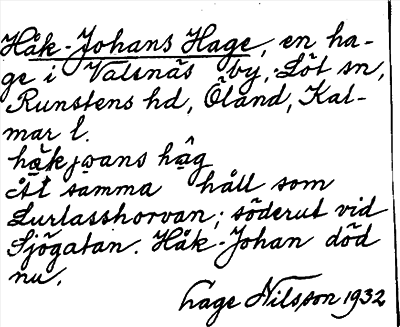 Håk-Johans Hage, en ha-
ge i Valsnäs by, Löt sn,
Runstens hd, Öland, Kal-
mar l.
håkjoans håg
Åt samma håll som
Lurlasshorvan; söderut vid
Sjögatan. Håk-Johan död
nu.
Lage Nilsson 1932